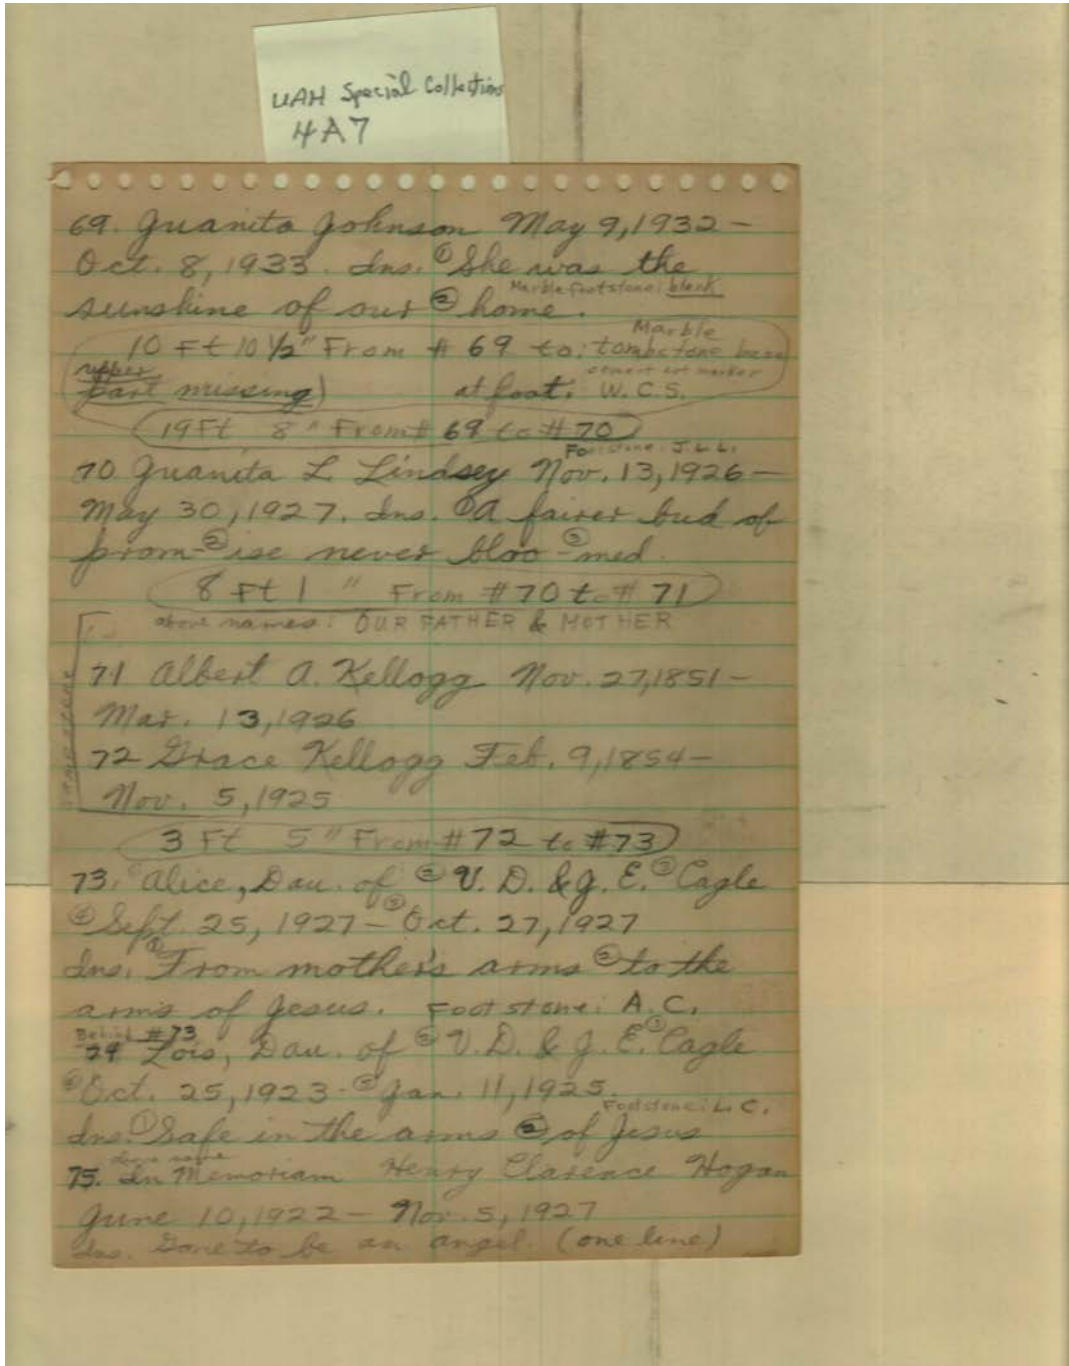 UAH Special Collections
4A7
69. Juanita Johnson May 9, 1932 –
Oct. 8, 1933. Ins. ① She was the
Marble footstone: blank
sunshine of our ② home.
10 Ft 10 1/2" From # 69 to: Marble
tombstone base
upper cement
marker
part missing) at foot: W.C.S.
19 Ft 8" From # 69 to # 70
Footstone: J.L.L.
70 Juanita L Lindsey Nov. 13, 1926 —
May 30, 1927. Ins. ① A fairer bud of
prom-② ise never bloo-③ med.
8 Ft 1 " From # 70 to # 71
above names: OUR FATHER & MOTHER
same stone
71 Albert A. Kellogg Nov. 27, 1851 –
Mar. 13, 1926
72 Grace Kellogg Feb. 9, 1854 –
Nov. 5, 1925
3 Ft 5" From # 72 to # 73
73. ① Alice, Dau. of ② V. D. & J. E. ③ Cagle
④ Sept. 25, 1927 – ⑤ Oct. 27, 1927
Ins. ① From mother's arms ② to the
arms of Jesus. Footstone: A.C.
Behind # 73
74 Lois, Dau. of ② V. D. & J. E. ③ Cagle
④ Oct. 25, 1923 - ⑤ Jan. 11, 1925.
Footstone: L. C.
Ins. ① Safe in the arms ② of Jesus
above name
75. In Memoriam Henry Clarence Hogan
June 10, 1922 – Nov. 5, 1927
Ins. Gone to be an angel. (one line)